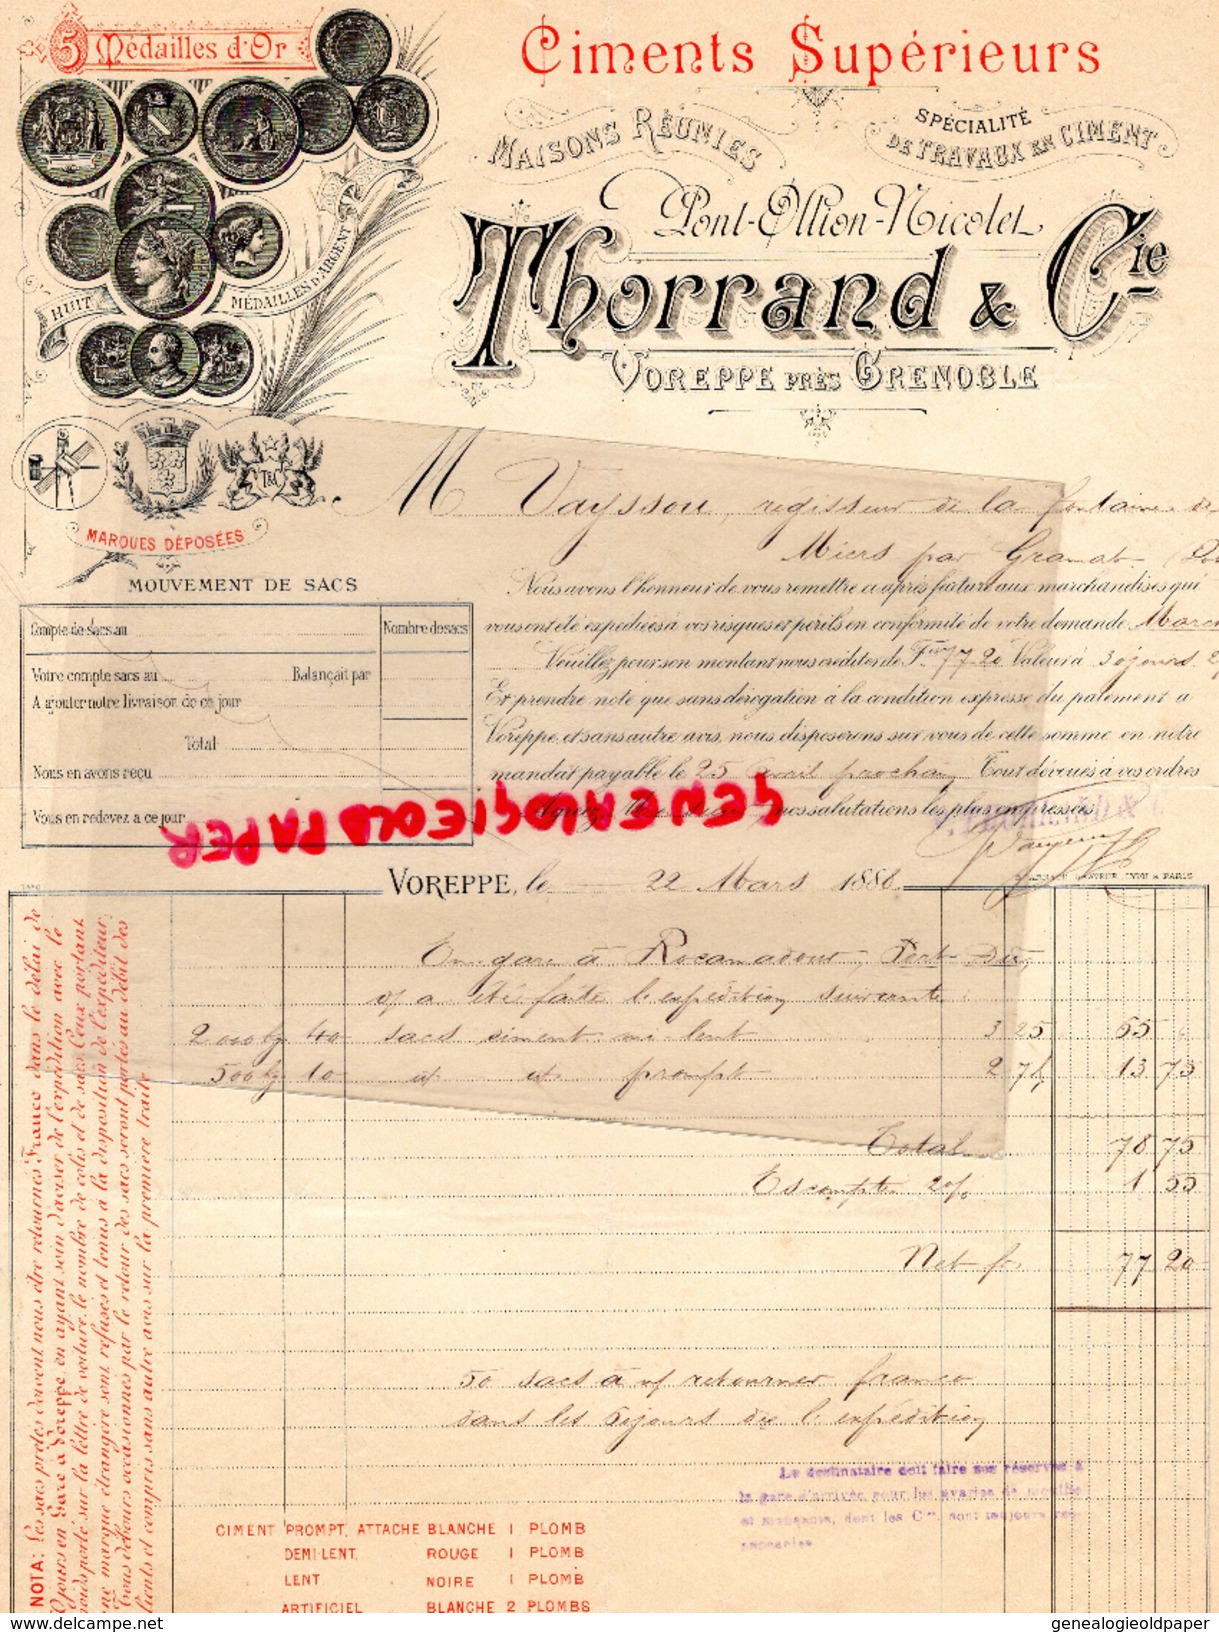 5 Médailles d'Or
Ciments Supérieurs
Maisons Réunies
Spécialité
de Travaux en Ciment
Pont-Ollion-Nicolet
Thorrand & Cie
Voreppe près Grenoble
Huit Médailles d'Argent
Marques Déposées
M Vayssou, régisseur de la fontaine de
Miers par Gramat
Mouvement de Sacs
Compte de sacs au
Nombre de sacs
Votre compte sacs au Balançait par
A ajouter notre livraison de ce jour
Total
Nous en avons reçu
Vous en redevez a ce jour
Nous avons l'honneur de vous remettre ci après facture aux marchandises qui
vous ont été expédiées à vos risques et périls en conformité de votre demande
Veuillez pour son montant nous créditer de Frcs 77.20 Valeur à 30 jours
Et prendre note que sans dérogation à la condition expresse du paiement a
Voreppe, et sans autre avis, nous disposerons sur vous de cette somme en notre
mandat payable le 25 avril prochain Tout dévoués à vos ordres
nos salutations les plus empressées
GENEALOGIEOLDPAPER
Voreppe, le 22 Mars 1886
En gare à Rocamadour, Port Dû,
il a été faite l'expédition suivante
2000 kg 40 sacs ciment mi-lent 3 25 65
500 kg 10 id id prompt 2 75 13 75
Total 78 75
Escompte 2% 1 55
Net fr. 77 20
50 sacs à n/ retourner franco
dans les 60 jours de l'expédition
Le destinataire doit faire ses réserves à
la gare d'arrivée pour les avaries de mouille
et manquants, dont les Cies sont toujours res-
ponsables
NOTA: Les sacs prêtés doivent nous être retournés Franco dans le délai de
60 jours en Gare à Voreppe en ayant soin d'aviser de l'expédition avec le
poids porté sur la lettre de voiture, le nombre de colis et de sacs. Ceux portant
une marque étrangère sont refusés et tenus à la disposition de l'expéditeur.
Tous débours occasionnés par le retour des sacs seront portés au débit des
clients et compris sans autre avis sur la première traite
CIMENT PROMPT, ATTACHE BLANCHE 1 PLOMB
DEMI-LENT, ROUGE 1 PLOMB
LENT NOIRE 1 PLOMB
ARTIFICIEL BLANCHE 2 PLOMBS
genealogieoldpaper